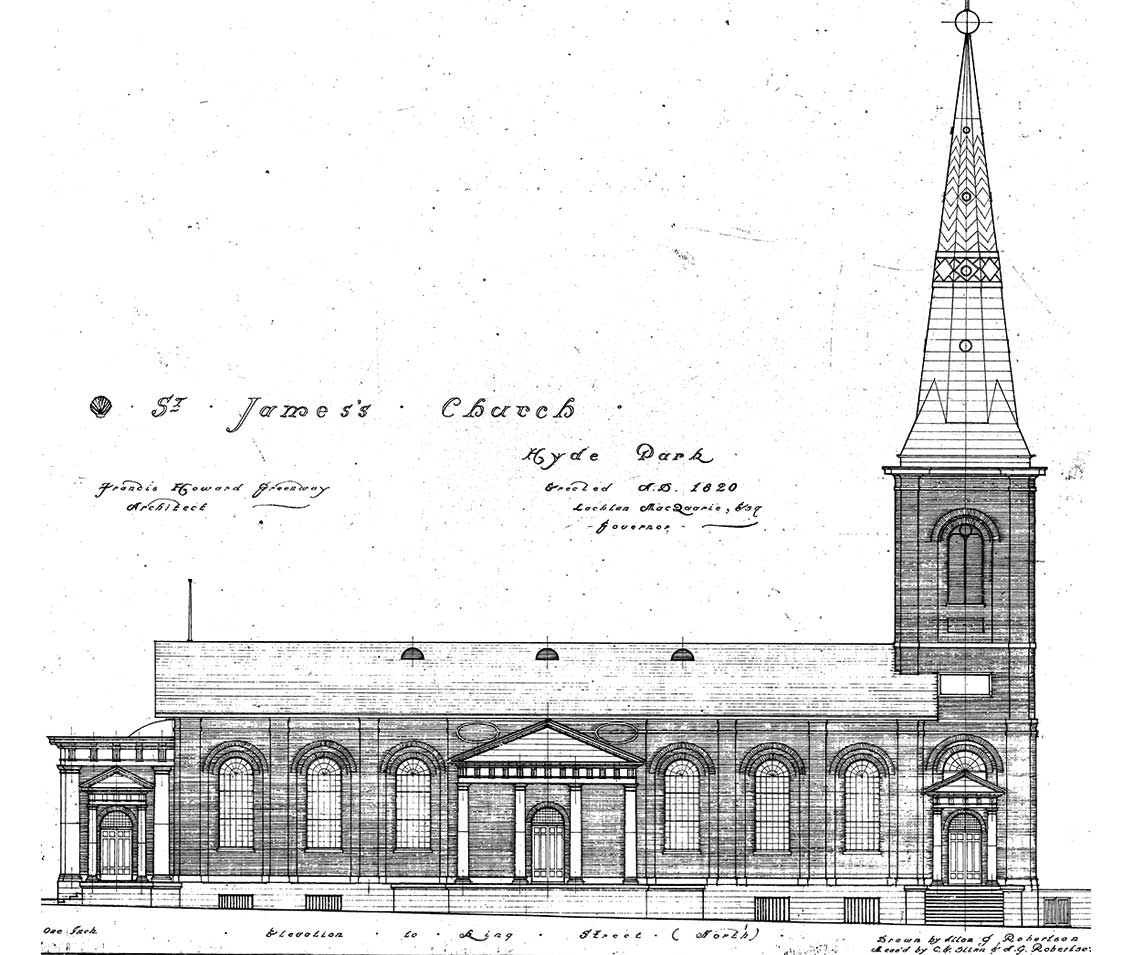 ST · James's · Church ·
Hyde Park
Francis Howard Greenway
Architect
Erected A.D. 1820
Lachlan MacQuarie, Esq
- Governor -
One Inch
· Elevation · to · King · Street · (North) ·
Drawn by Allan G. Robertson
Meas'd by C. & A.G. Robertson